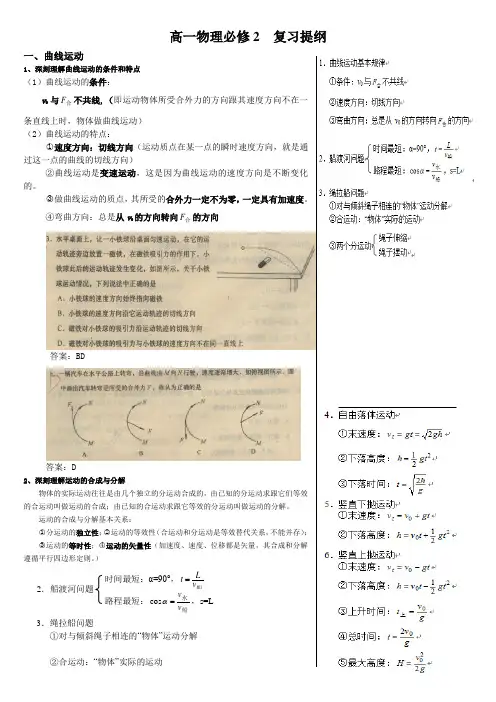 高一物理必修2 复习提纲
一、曲线运动
1、深刻理解曲线运动的条件和特点
(1)曲线运动的条件:
v₀与F合不共线,(即运动物体所受合外力的方向跟其速度方向不在一
条直线上时,物体做曲线运动)
(2)曲线运动的特点:
①速度方向:切线方向(运动质点在某一点的瞬时速度方向,就是通
过这一点的曲线的切线方向)
②曲线运动是变速运动,这是因为曲线运动的速度方向是不断变化
的。
③做曲线运动的质点,其所受的合外力一定不为零,一定具有加速度。
④弯曲方向:总是从v₀的方向转向F合的方向
3、水平桌面上,让一小铁球沿桌面匀速运动,在它的运
动轨迹旁边放置一磁铁,在磁铁吸引力的作用下,小
铁球此后的运动轨迹发生变化,如图所示,关于小铁
球运动情况,下列说法中正确的是
A、小铁球的速度方向始终指向磁铁
B、小铁球的速度方向沿它运动轨迹的切线方向
C、磁铁对小铁球的吸引力沿运动轨迹的切线方向
D、磁铁对小铁球的吸引力与小铁球的速度方向不在同一直线上
答案:BD
一辆汽车在水平公路上转弯,沿曲线由M向N行驶,速度逐渐增大,
中画出汽车转弯近所受的合外力F,你认为正确的是
F N N N N
F F F
M M M M
A B C D
答案:D
2、深刻理解运动的合成与分解
物体的实际运动往往是由几个独立的分运动合成的,由已知的分运动求跟它们等效
的合运动叫做运动的合成;由已知的合运动求跟它等效的分运动叫做运动的分解。
运动的合成与分解基本关系:
①分运动的独立性;②运动的等效性(合运动和分运动是等效替代关系,不能并存);
③运动的等时性;④运动的矢量性(加速度、速度、位移都是矢量,其合成和分解
遵循平行四边形定则。)
2.船渡河问题
时间最短:α=90°,t=L/v船
路程最短:cosα=v水/v船,s=L
3.绳拉船问题
①对与倾斜绳子相连的“物体”运动分解
②合运动:“物体”实际的运动
1.曲线运动基本规律
①条件:v₀与F合不共线
②速度方向:切线方向
③弯曲方向:总是从v₀的方向转向F合的方向
2.船渡河问题
时间最短:α=90°,t=L/v船
路程最短:cosα=v水/v船,s=L
3.绳拉船问题
①对与倾斜绳子相连的“物体”运动分解
②合运动:“物体”实际的运动
③两个分运动
绳子伸缩
绳子摆动
4.自由落体运动
①末速度:vt=gt=√2gh
②下落高度:h=1/2 gt²
③下落时间:t=√(2h/g)
5.竖直下抛运动
①末速度:vt=v₀+gt
②下落高度:h=v₀t+1/2 gt²
6.竖直上抛运动
①末速度:vt=v₀-gt
②下落高度:h=v₀t-1/2 gt²
③上升时间:t上=v₀/g
④总时间:t=2v₀/g
⑤最大高度:H=v₀²/2g